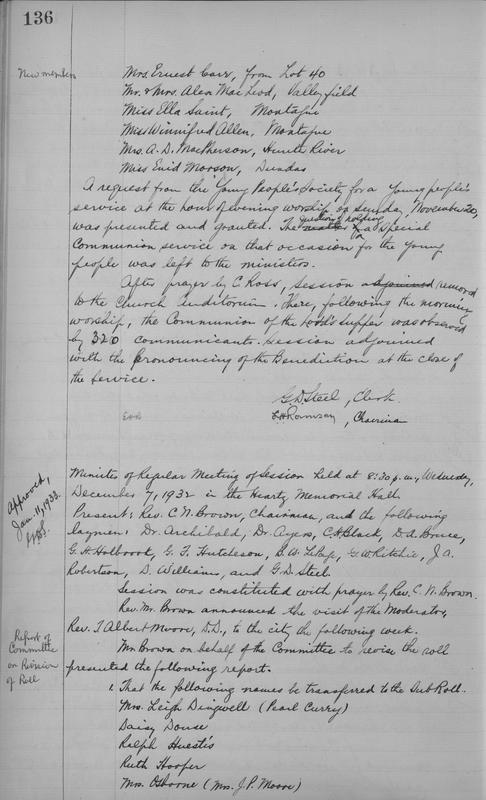 136
New members
Mrs. Ernest Carr, from Lot 40
Mr. & Mrs. Alan MacLeod, Valleyfield
Miss Ella Saint, Montague
Miss Winnifred Allen, Montague
Mrs. A. D. MacPherson, Hunter River
Miss Enid Morson, Dundas
A request from the Young People's Society for a young people's
service at the hour of evening worship on Sunday, November 20,
was presented and granted. The question of holding a special
Communion service on that occasion for the young
people was left to the ministers.
After prayer by C. Ross, session adjourned removed
to the Church Auditorium. There, following the morning
worship, the Communion of the Lord's Supper was observed
by 320 communicants. Session adjourned
with the pronouncing of the Benediction at the close of
the service.
G. D. Steel, Clerk
Ramsay, Chairman
Approved,
Jan. 11, 1933.
Minutes of Regular Meeting of Session held at 8:30 p.m., Wednesday,
December 7, 1932 in the Heartz Memorial Hall.
Present: Rev. C. N. Brown, Chairman, and the following
laymen: Dr. Archibald, Dr. Ayers, C. H. Black, D. A. Bruce,
G. H. Holbrook, G. F. Hutcheson, B. W. LePage, G. W. Ritchie, J. A.
Robertson, D. Williams, and G. D. Steel.
Session was constituted with prayer by Rev. C. N. Brown.
Rev. Mr. Brown announced the visit of the Moderator,
Rev. T. Albert Moore, D.D., to the city the following week.
Report of
Committee
on Revision
of Roll
Mr. Brown on behalf of the Committee to revise the roll
presented the following report.
1. That the following names be transferred to the Sub Roll.
Mrs. Leigh Dingwell (Pearl Curry)
Daisy Douse
Ralph Huestis
Ruth Hooper
Mrs. Osborne (Mrs. J. P. Moore)